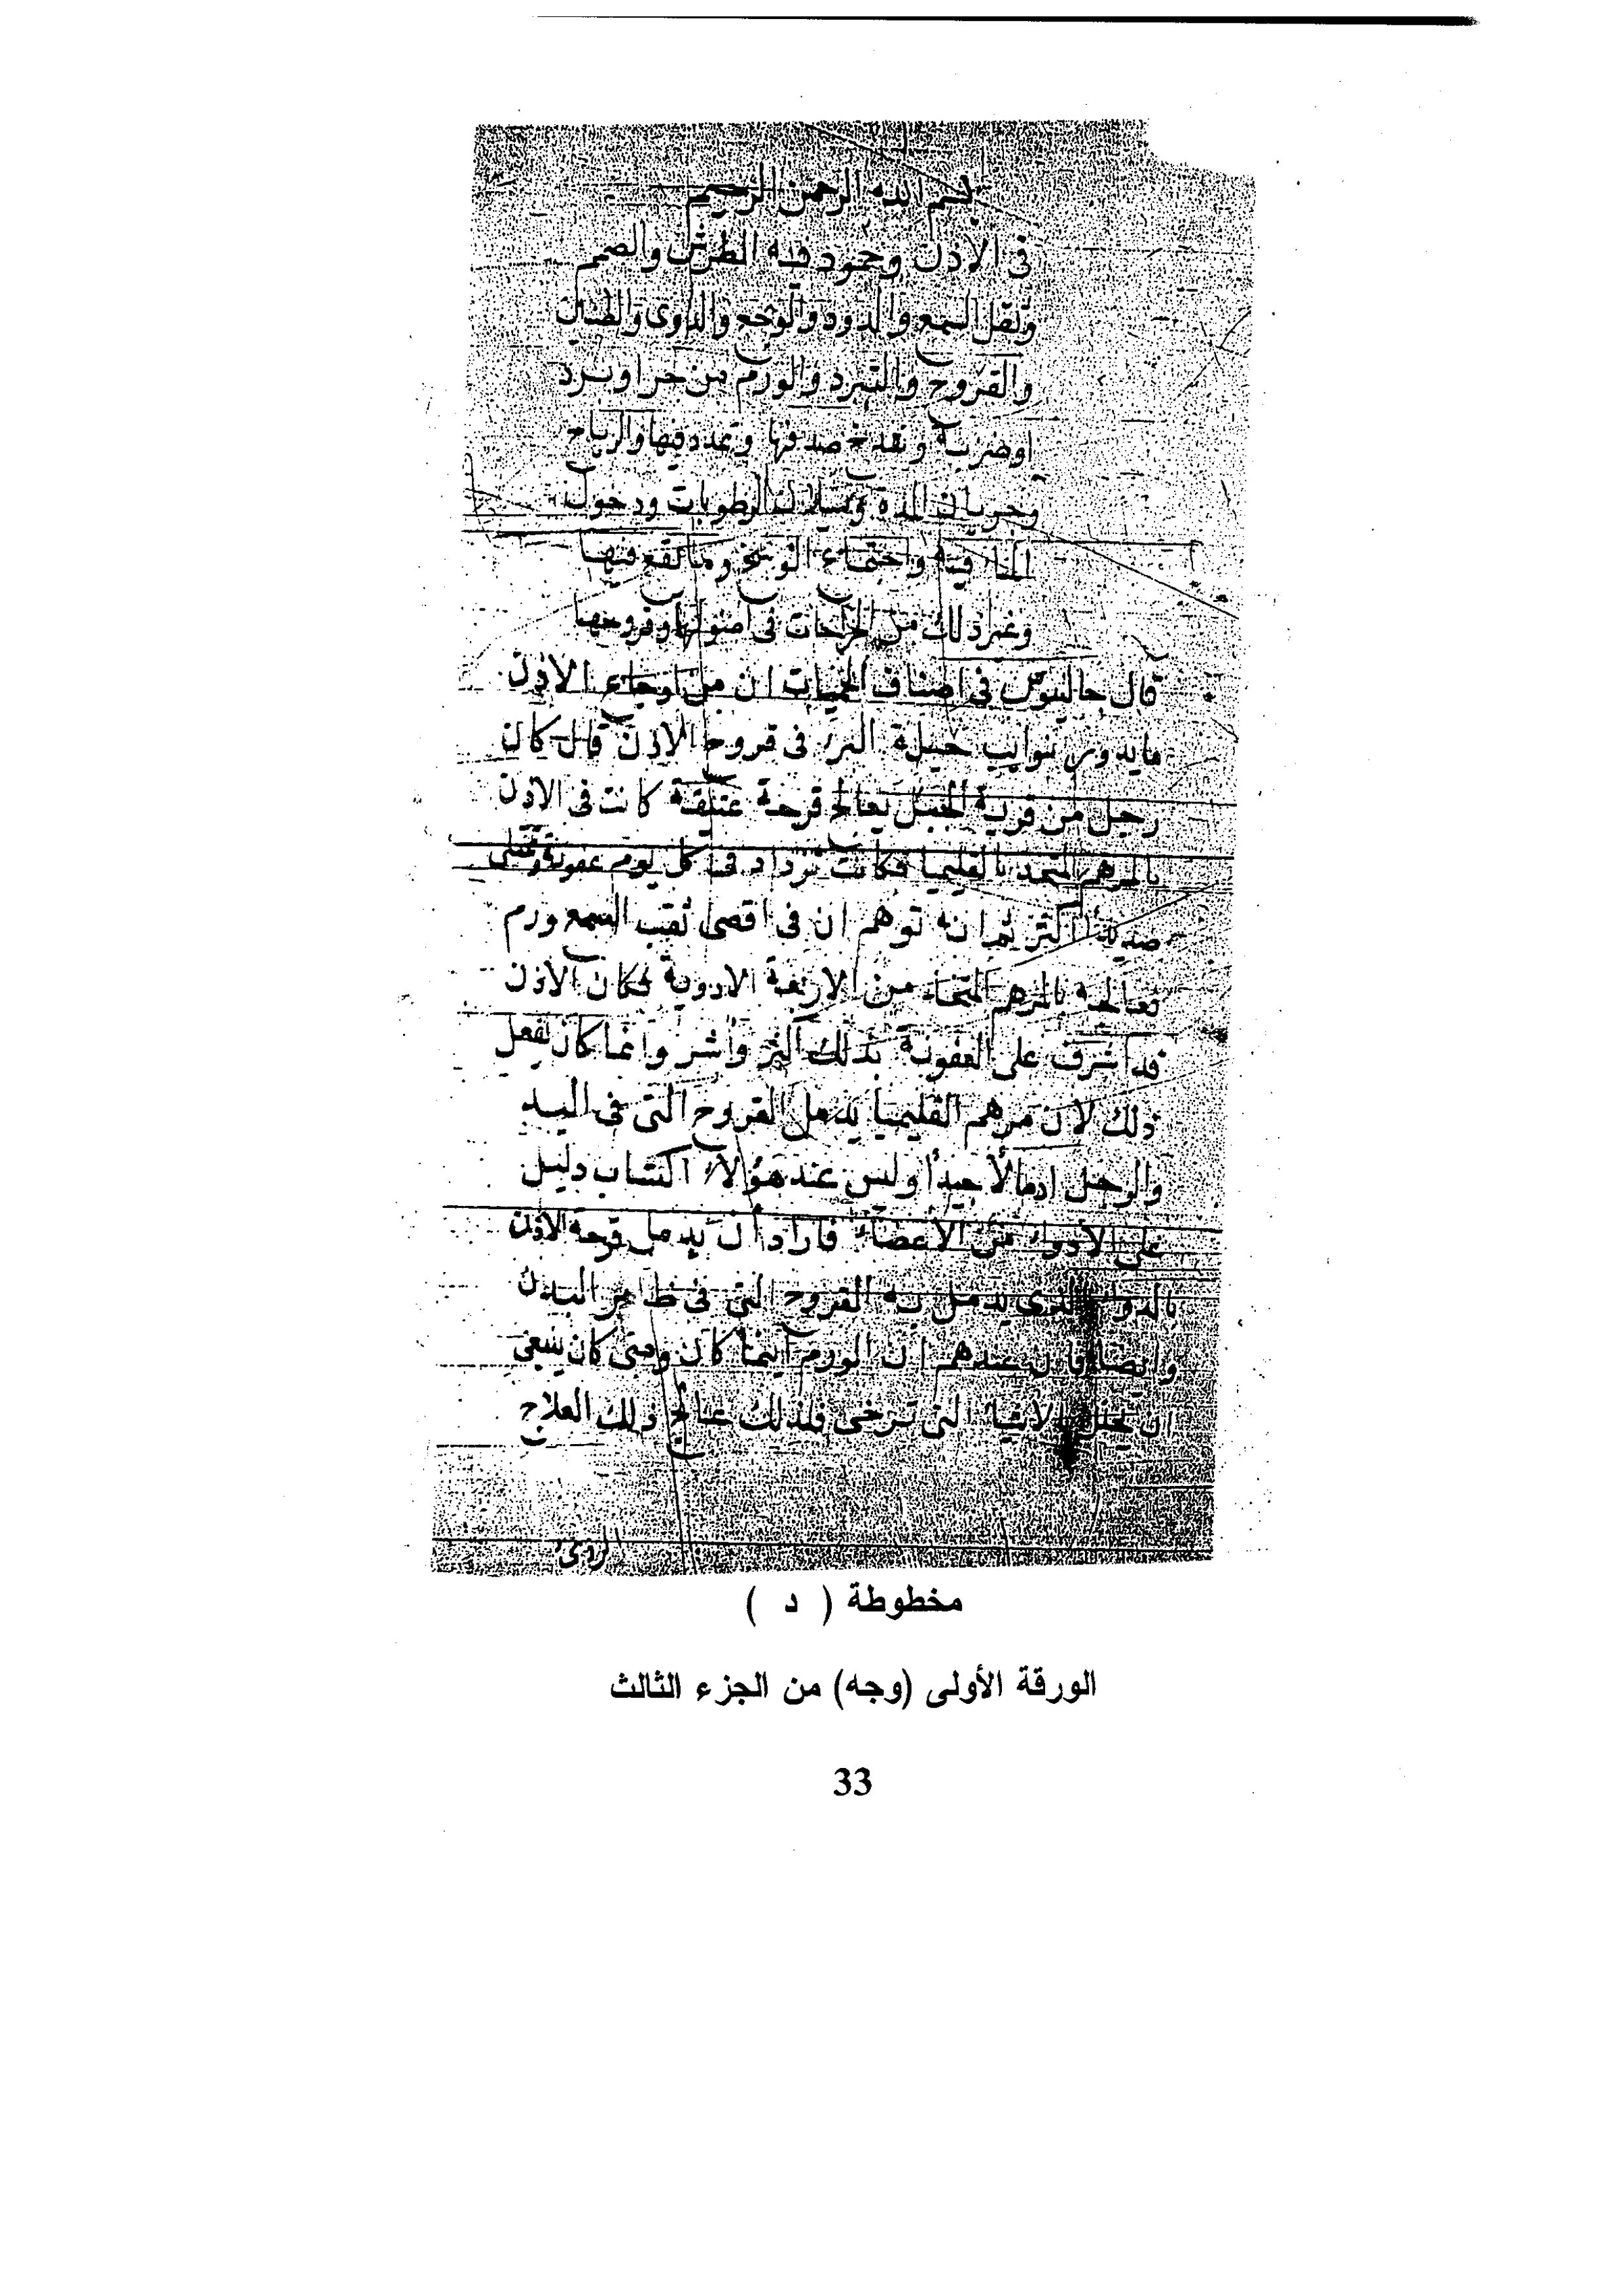 بسم الله الرحمن الرحيم
في الأذن وجمود فيه الطرش والصمم
وثقل السمع والدود والوجع والدوى والطنين
والقروح والتبرد والورم من حر او برد
او ضربة وفدخ صدفها وتمدد فيها والرياح
وجريان المدة وسيلان الرطوبات ودخول
الماء فيه واجتماع الوسخ وما يقع فيها
وغير ذلك من الخراجات في اصولها وقروحها
قال جالينوس في اصناف الحميات ان من اوجاع الاذن
ما يدور بنوايب حيلة البرء في قروح الاذن قال كان
رجل من قرية الجبل يعالج قرحة عتيقة كانت في الاذن
بالمرهم المتخذ بالقليميا فكانت تزداد في كل يوم عفونة وتمتلى
صديدا اكثر ثم انه توهم ان في اقصى ثقب السمع ورم
فعالجه بالمرهم المتخذ من الاربعة الادوية فكان الاذن
قد اشرف على العفونة بذلك اكثر واشر وانما كان يفعل
ذلك لان مرهم القليميا يدمل القروح التي في اليد
والرجل ادمالا جيدا وليس عند هؤلاء اكتساب دليل
على الادواء من الاعضاء فاراد أن يدمل قرحة الاذن
بالدواء الذي يدمل به القروح التي في ظاهر البدن
وايضا فان عندهم ان الورم اينما كان ومتى كان ينبغي
ان يحلل بالاشياء التي ترخى فلذلك عالج ذلك العلاج
مخطوطة ( د )
الورقة الأولى (وجه) من الجزء الثالث
33